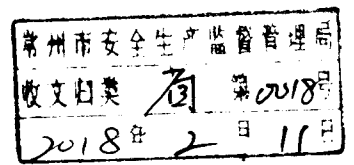 常州市安全生产监督管理局
收文归类 省 第0018号
2018年 2 日 11日